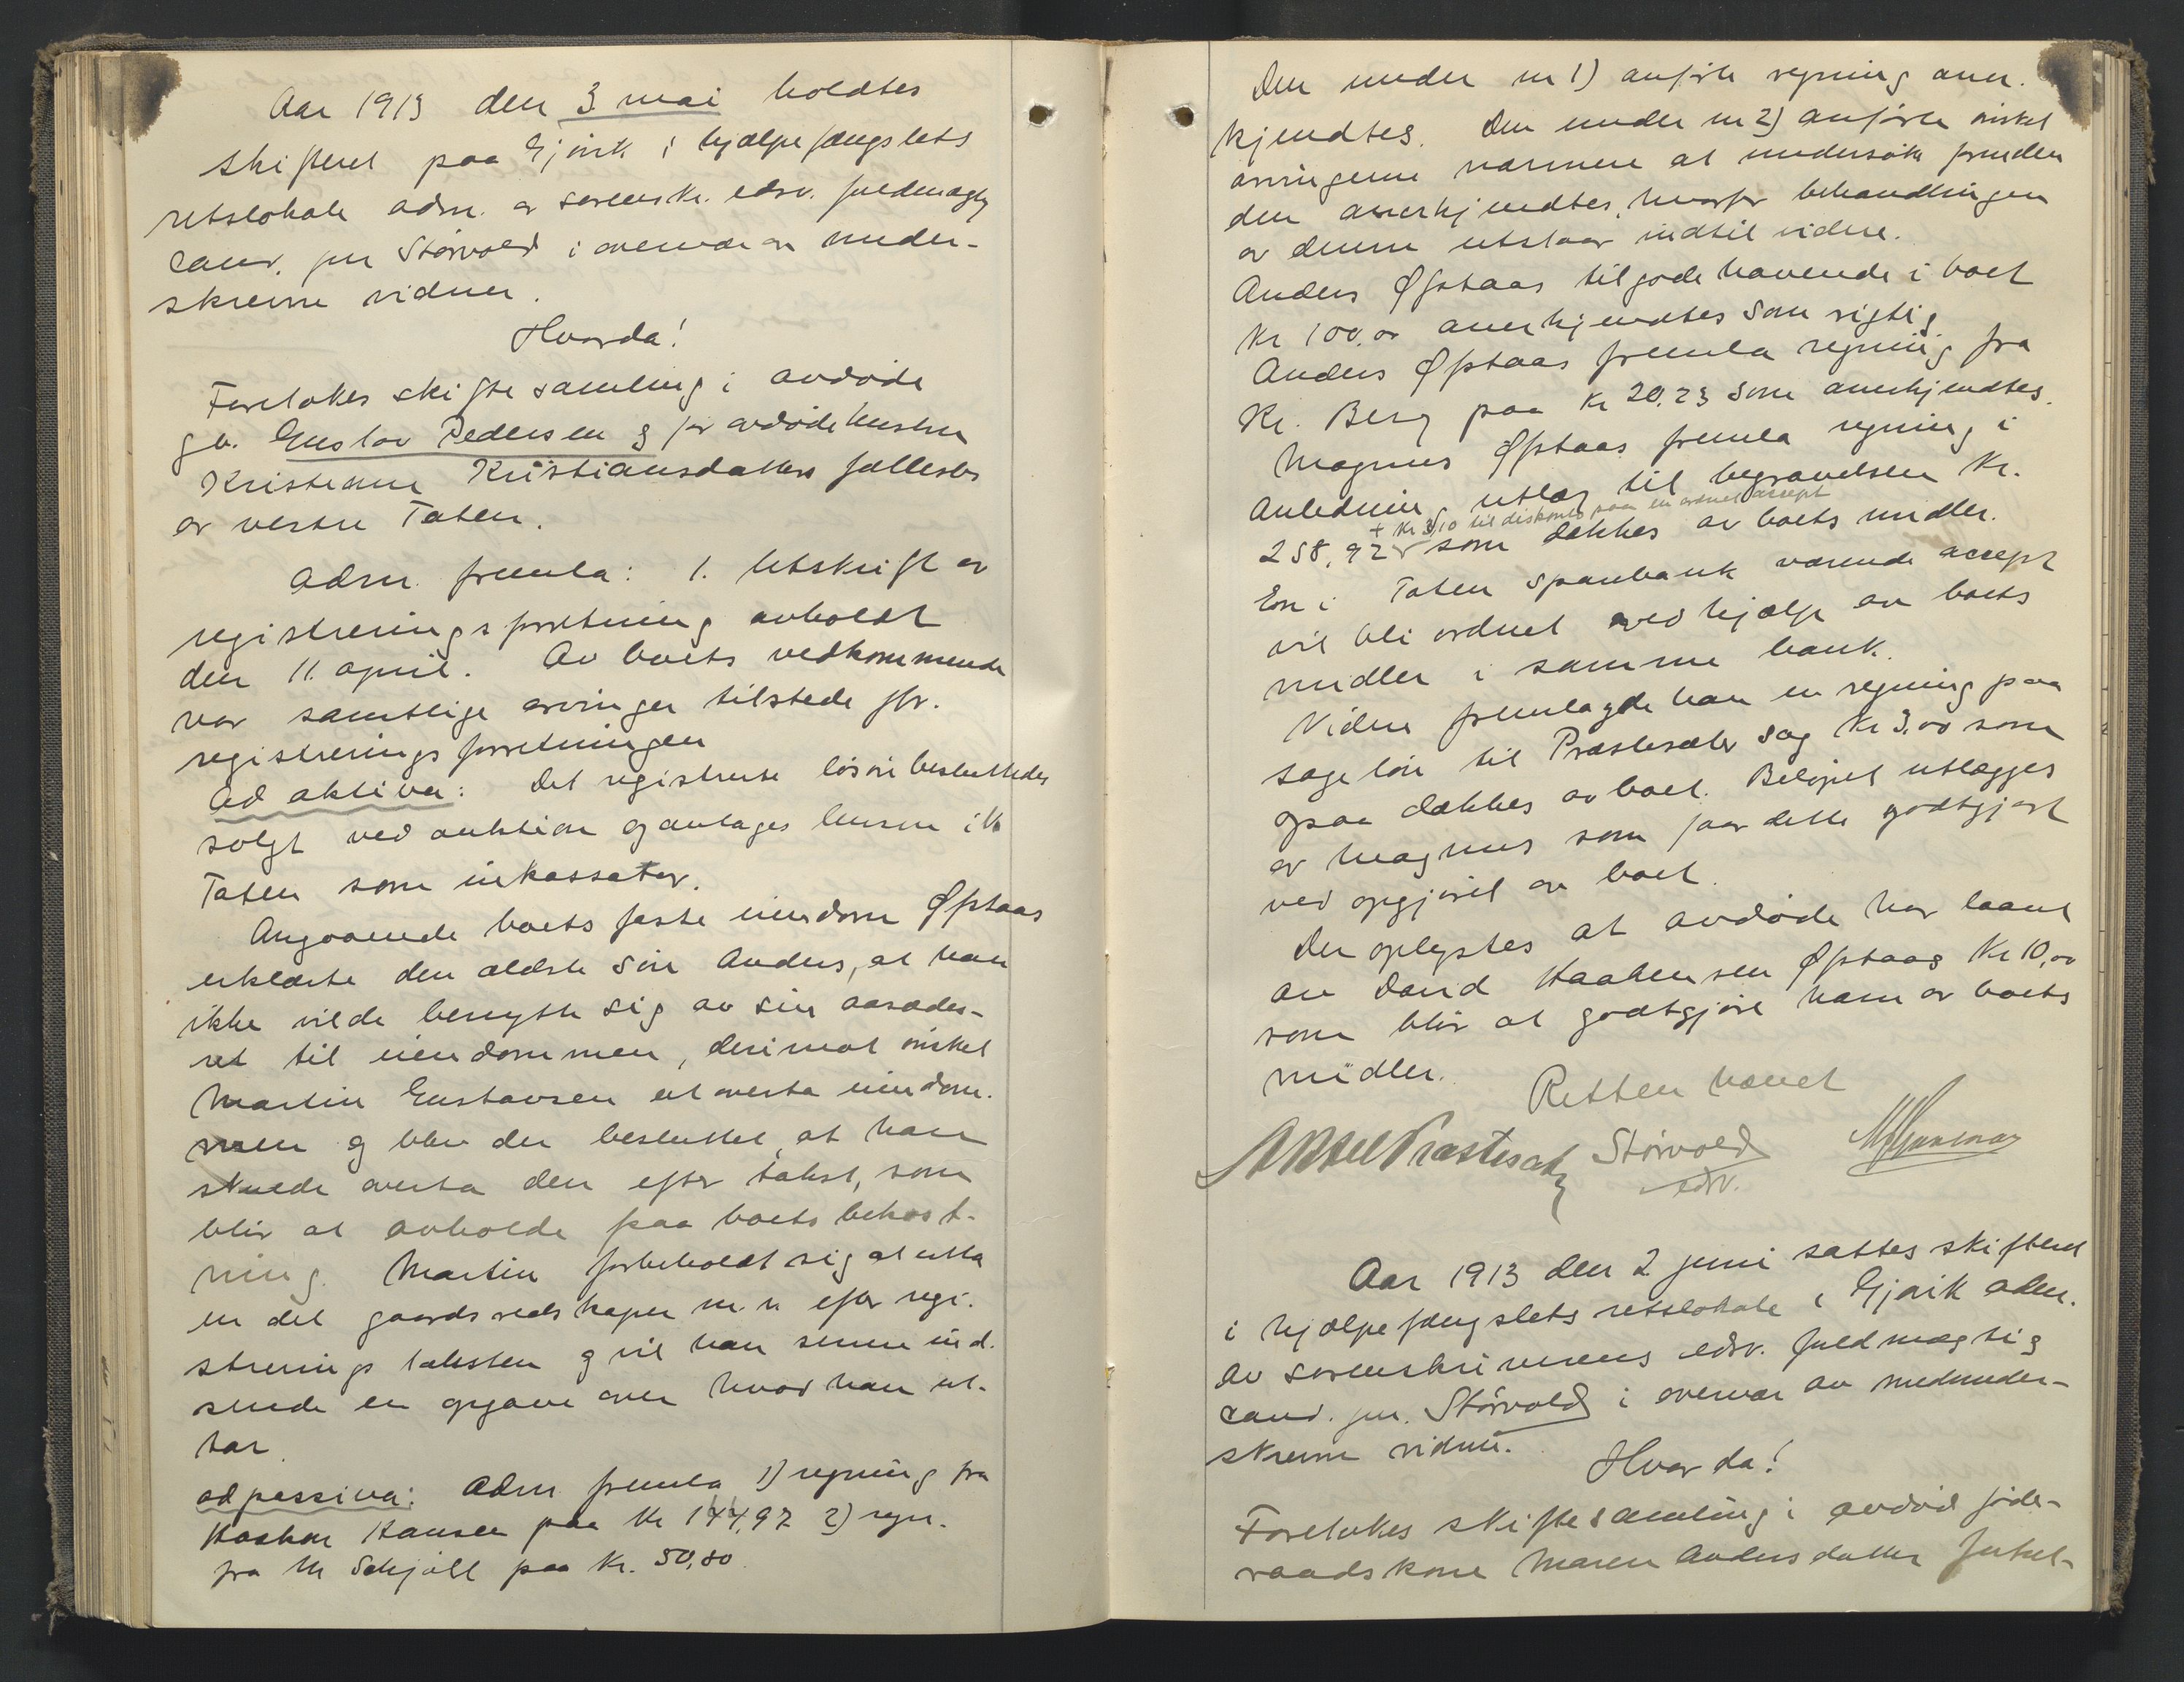 Aar 1913 den 3 mai holdtes
skifteret paa Gjøvik i hjælpefængslets
retslokale adm. av sorenskr. edsv. fuldmægtig
cand. jur Störvold i overvær av under-
skrevne vidner.
Hvorda!
Foretokes skiftesamling i avdöde
gb. Gustav Pedersen og før avdöde hustru
Kristiansdatters fællesbo
av vestre Toten.
Adm. fremla: 1. Utskrift av
registreringsforretning avholdt
den 11. april. Av boets vedkommende
var samtlige arvinger tilstede jfr.
registreringsforretningen
Ad aktiva: Det registrerte lösöre besluttedes
solgt ved auktion og antages lensm. i V.
Toten som inkassator.
Angaaende boets faste eiendom Øfstaas
erklærte den ældste sön Anders, at han
ikke vilde benytte sig av sin aasædes-
ret til eiendommen, derimot önsket
Martin Gustavsen at overta eiendom-
men og blev det besluttet, at han
skulde overta den efter takst, som
blir at avholde paa boets bekost-
ning. Martin forbeholdt sig at utta
en del gaardsredskaper m. v. efter regi-
streringstaksten og vil han senere ind-
sende en opgave over hvad han ut-
tar.
ad passiva: Adm fremla 1) regning fra
Haakon Hansen paa Kr 144,97 2) regn.
fra M Schjöll paa Kr. 50,80
Den under nr 1) anförte regning aner-
kjendtes. Den under nr 2) anförte önsket
arvingerne nærmere at undersöke forinden
den anerkjendtes, hvorfor behandlingen
av denne utstaar indtil videre.
Anders Øfstaas tilgodehavende i boet
Kr 100,00 anerkjendtes som rigtig.
Anders Øfstaas fremla regning fra
Kr. Berg paa Kr 20.23 som anerkjendtes.
Magnus Øfstaas fremla regning i
anledning utlæg til begravelsen Kr.
+ Kr 3,10 til diskonto paa en ordnet accept
258,92 som dækkes av boets midler.
En i Toten sparebank værende accept
vil bli ordnet ved hjælp av boets
midler i samme bank.
Videre fremlagde han en regning paa
sagelön til Præstesæter sag Kr 3.00 som
ogsaa dækkes av boet. Belöpet utlægges
av Magnus som faar dette godtgjort
ved opgjöret av boet.
Der oplystes at avdöde har laant
av David Haakensen Øfstaas Kr 10,00
som blir at godtgjöre ham av boets
midler.
Retten hævet
Præstesæter Störvold
edsv.
Aar 1913 den 2 juni sattes skifteret
i hjælpefængslets retslokale i Gjøvik adm.
av sorenskriverens edsv. fuldmægtig
cand. jur. Störvold i overvær av medunder-
skrevne vidner.
Hvor da!
Foretokes skiftesamling i avdöd föde-
raadskone Maren Andersdatter